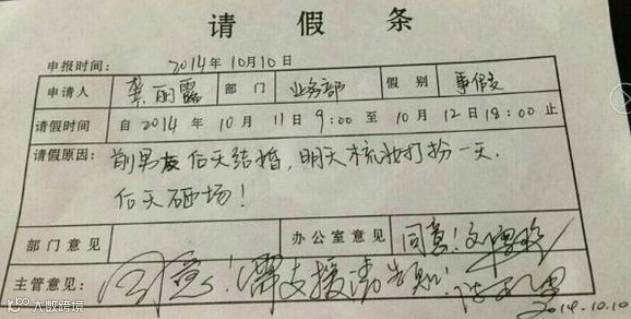 请假条
申报时间: 2014年10月10日
申请人 龚丽露 部门 业务部 假别 事假
请假时间 自2014年10月11日9:00至10月12日18:00止
请假原因: 前男友后天结婚,明天梳妆打扮一天.
后天砸场!
部门意见 办公室意见 同意!
主管意见: 同意!需支援请告知!
2014.10.10
大数跨境